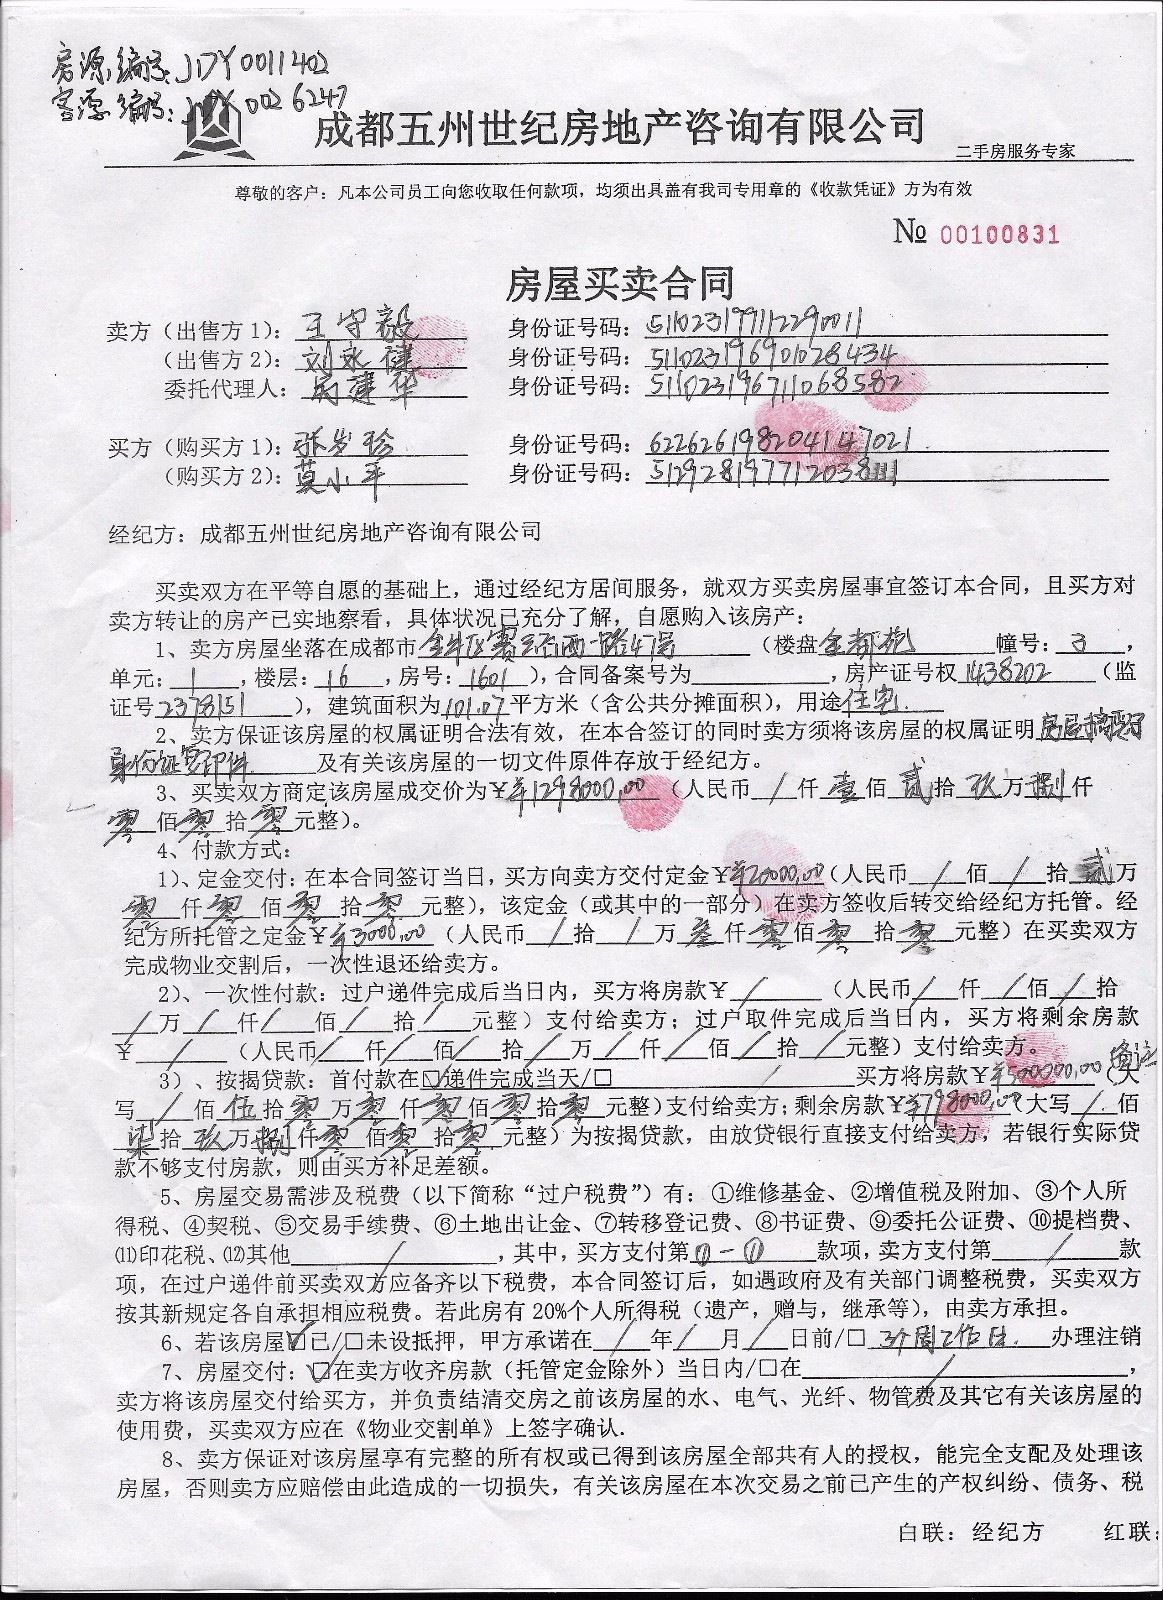 房源编号:JDY0011402
客源编号:JDY0026247
成都五州世纪房地产咨询有限公司
二手房服务专家
尊敬的客户：凡本公司员工向您收取任何款项，均须出具盖有我司专用章的《收款凭证》方为有效
№ 00100831
房屋买卖合同
卖方（出售方1）：王守毅 身份证号码：5110231991112290011
（出售方2）：刘永健 身份证号码：511023196901028434
委托代理人：周建华 身份证号码：511023196711068582
买方（购买方1）：张岁珍 身份证号码：622626198204147021
（购买方2）：莫小平 身份证号码：512928197712038
经纪方：成都五州世纪房地产咨询有限公司
买卖双方在平等自愿的基础上，通过经纪方居间服务，就双方买卖房屋事宜签订本合同，且买方对
卖方转让的房产已实地察看，具体状况已充分了解，自愿购入该房产：
1、卖方房屋坐落在成都市金牛区赛云台西一路47号（楼盘金都苑 幢号：3，
单元：1，楼层：16，房号：1601），合同备案号为 ，房产证号权1438202（监
证号2378151），建筑面积为101.07平方米（含公共分摊面积），用途住宅.
2、卖方保证该房屋的权属证明合法有效，在本合签订的同时卖方须将该房屋的权属证明
身份证复印件 及有关该房屋的一切文件原件存放于经纪方。
3、买卖双方商定该房屋成交价为￥￥1298000.00（人民币/仟壹佰贰拾玖万捌仟
零佰零拾零元整）。
4、付款方式：
1）、定金交付：在本合同签订当日，买方向卖方交付定金￥￥20000.00（人民币/佰/拾贰万
零仟零佰零拾零元整），该定金（或其中的一部分）在卖方签收后转交给经纪方托管。经
纪方所托管之定金￥￥3000.00（人民币/拾/万叁仟零佰零拾零元整）在买卖双方
完成物业交割后，一次性退还给卖方。
2）、一次性付款：过户递件完成后当日内，买方将房款￥/（人民币/仟/佰/拾
/万/仟/佰/拾/元整）支付给卖方；过户取件完成后当日内，买方将剩余房款
￥/（人民币/仟/佰/拾/万/仟/佰/拾/元整）支付给卖方。
3）、按揭贷款：首付款在☑递件完成当天/☐ / 买方将房款￥￥500000.00（大
备注
写/佰伍拾零万零仟零佰零拾零元整）支付给卖方；剩余房款￥￥798000.00（大写/佰
柒拾玖万捌仟零佰零拾零元整）为按揭贷款，由放贷银行直接支付给卖方，若银行实际贷
款不够支付房款，则由买方补足差额。
5、房屋交易需涉及税费（以下简称“过户税费”）有：①维修基金、②增值税及附加、③个人所
得税、④契税、⑤交易手续费、⑥土地出让金、⑦转移登记费、⑧书证费、⑨委托公证费、⑩提档费、
⑾印花税、⑿其他/，其中，买方支付第①-⑪款项，卖方支付第/款
项，在过户递件前买卖双方应备齐以下税费，本合同签订后，如遇政府及有关部门调整税费，买卖双方
按其新规定各自承担相应税费。若此房有20%个人所得税（遗产，赠与，继承等），由卖方承担。
6、若该房屋☑已/☐未设抵押，甲方承诺在/年/月/日前/☐ 3个周工作日. 办理注销
7、房屋交付：☑在卖方收齐房款（托管定金除外）当日内/☐在/，
卖方将该房屋交付给买方，并负责结清交房之前该房屋的水、电气、光纤、物管费及其它有关该房屋的
使用费，买卖双方应在《物业交割单》上签字确认.
8、卖方保证对该房屋享有完整的所有权或已得到该房屋全部共有人的授权，能完全支配及处理该
房屋，否则卖方应赔偿由此造成的一切损失，有关该房屋在本次交易之前已产生的产权纠纷、债务、税
白联：经纪方 红联：